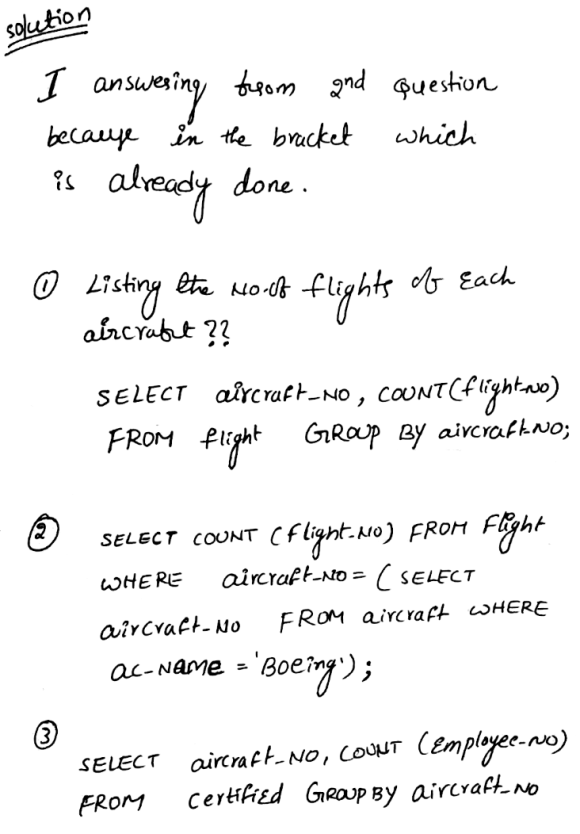 solution
I answering from 2nd Question
because in the bracket which
is already done.
① Listing the No.of flights of Each
aircraft ??
SELECT aircraft-NO, COUNT(flight-NO)
FROM flight GROUP BY aircraft-NO;
② SELECT COUNT (flight-NO) FROM Flight
WHERE aircraft-NO = ( SELECT
aircraft-NO FROM aircraft WHERE
ac-Name = 'Boeing');
③
SELECT aircraft-NO, COUNT (Employee-NO)
FROM certified GROUP BY aircraft-NO